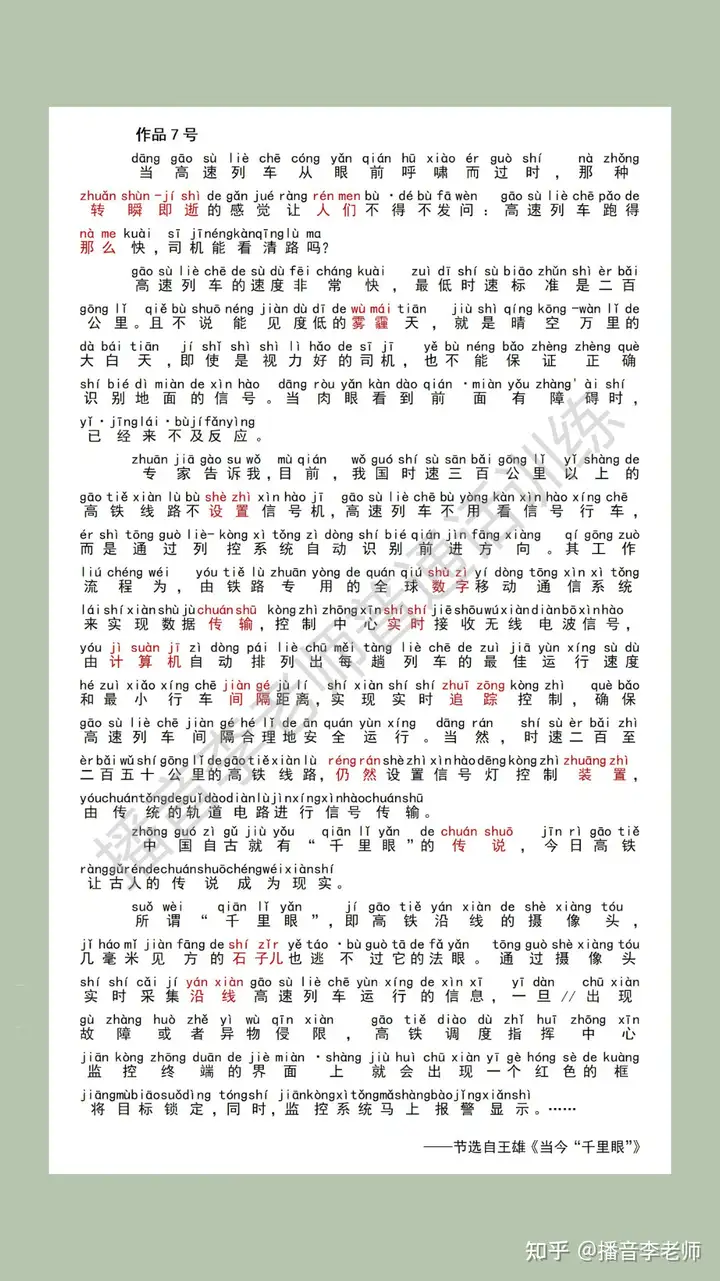 作品7号
dāng gāo sù liè chē cóng yǎn qián hū xiào ér guò shí nà zhǒng
当高速列车从眼前呼啸而过时，那种
zhuǎn shùn -jí shì de gǎn jué ràng rén men bù ·dé bù fā wèn gāo sù liè chē pǎo de
转瞬即逝的感觉让人们不得不发问：高速列车跑得
nà me kuài sī jīnéngkànqīnglù ma
那么快，司机能看清路吗？
gāo sù liè chē de sù dù fēi cháng kuài zuì dī shí sù biāo zhǔn shì èr bǎi
高速列车的速度非常快，最低时速标准是二百
gōng lǐ qiě bù shuō néng jiàn dù dī de wù mái tiān jiù shì qíng kōng -wàn lǐ de
公里。且不说能见度低的雾霾天，就是晴空万里的
dà bái tiān jí shǐ shì shì lì hǎo de sī jī yě bù néng bǎo zhèng zhèng què
大白天，即使是视力好的司机，也不能保证正确
shí bié dì miàn de xìn hào dāng ròu yǎn kàn dào qián ·miàn yǒu zhàng' ài shí
识别地面的信号。当肉眼看到前面有障碍时，
yǐ·jīnglái·bùjífǎnyìng
已经来不及反应。
zhuān jiā gào su wǒ mù qián wǒ guó shí sù sān bǎi gōng lǐ yǐ shàng de
专家告诉我，目前，我国时速三百公里以上的
gāo tiě xiàn lù bù shè zhì xìn hào jī gāo sù liè chē bù yòng kàn xìn hào xíng chē
高铁线路不设置信号机，高速列车不用看信号行车，
ér shì tōng guò liè- kòng xì tǒng zì dòng shí bié qián jìn fāng xiàng qí gōng zuò
而是通过列控系统自动识别前进方向。其工作
liú chéng wéi yóu tiě lù zhuān yòng de quán qiú shù zì yí dòng tōng xìn xì tǒng
流程为，由铁路专用的全球数字移动通信系统
lái shí xiàn shù jù chuán shū kòng zhì zhōng xīn shí shí jiē shōu wú xiàn diàn bō xìn hào
来实现数据传输，控制中心实时接收无线电波信号，
yóu jì suàn jī zì dòng pái liè chū měi tàng liè chē de zuì jiā yùn xíng sù dù
由计算机自动排列出每趟列车的最佳运行速度
hé zuì xiǎo xíng chē jiàn gé jù lí shí xiàn shí shí zhuī zōng kòng zhì què bǎo
和最小行车间隔距离，实现实时追踪控制，确保
gāo sù liè chē jiàn gé hé lǐ de ān quán yùn xíng dāng rán shí sù èr bǎi zhì
高速列车间隔合理地安全运行。当然，时速二百至
èrbǎiwǔshígōnglǐdegāotiěxiànlù réngránshèzhìxìnhàodēngkòngzhìzhuāngzhì
二百五十公里的高铁线路，仍然设置信号灯控制装置，
yóuchuántǒngdeguǐdàodiànlùjìnxíngxìnhàochuánshū
由传统的轨道电路进行信号传输。
zhōng guó zì gǔ jiù yǒu qiān lǐ yǎn de chuán shuō jīn rì gāo tiě
中国自古就有“千里眼”的传说，今日高铁
rànggǔréndechuánshuōchéngwéixiànshí
让古人的传说成为现实。
suǒ wèi qiān lǐ yǎn jí gāo tiě yán xiàn de shè xiàng tóu
所谓“千里眼”，即高铁沿线的摄像头，
jǐ háo mǐ jiàn fāng de shí zǐr yě táo ·bù guò tā de fǎ yǎn tōng guò shè xiàng tóu
几毫米见方的石子儿也逃不过它的法眼。通过摄像头
shí shí cǎi jí yán xiàn gāo sù liè chē yùn xíng de xìn xī yī dàn chū xiàn
实时采集沿线高速列车运行的信息，一旦//出现
gù zhàng huò zhě yì wù qīn xiàn gāo tiě diào dù zhǐ huī zhōng xīn
故障或者异物侵限，高铁调度指挥中心
jiān kòng zhōng duān de jiè miàn ·shàng jiù huì chū xiàn yī gè hóng sè de kuàng
监控终端的界面上就会出现一个红色的框
jiāngmùbiāosuǒdìng tóngshí jiānkòngxìtǒngmǎshàngbàojǐngxiǎnshì
将目标锁定，同时，监控系统马上报警显示。……
——节选自王雄《当今“千里眼”》
播音李老师普通话训练
知乎 @播音李老师